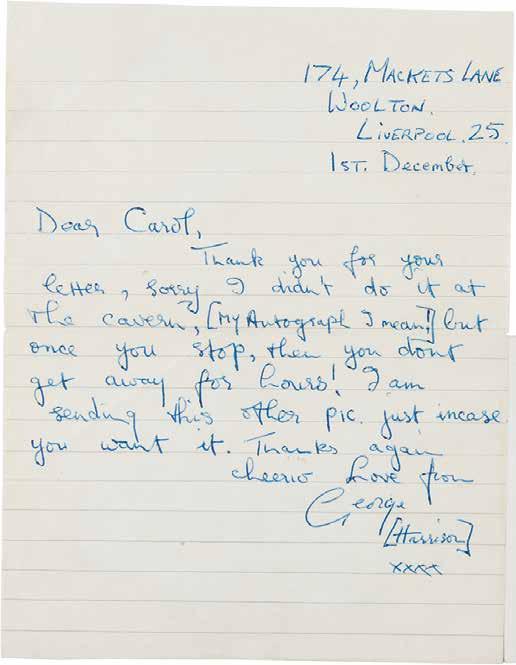 174, MACKETS LANE
WOOLTON.
LIVERPOOL. 25.
1ST. December.
Dear Carol,
Thank you for your
letter, sorry I didn't do it at
the cavern, [My Autograph I mean!] but
once you stop, then you dont
get away for hours! I am
sending this other pic. just incase
you want it. Thanks again
cheerio Love from
George
[Harrison]
xxxx